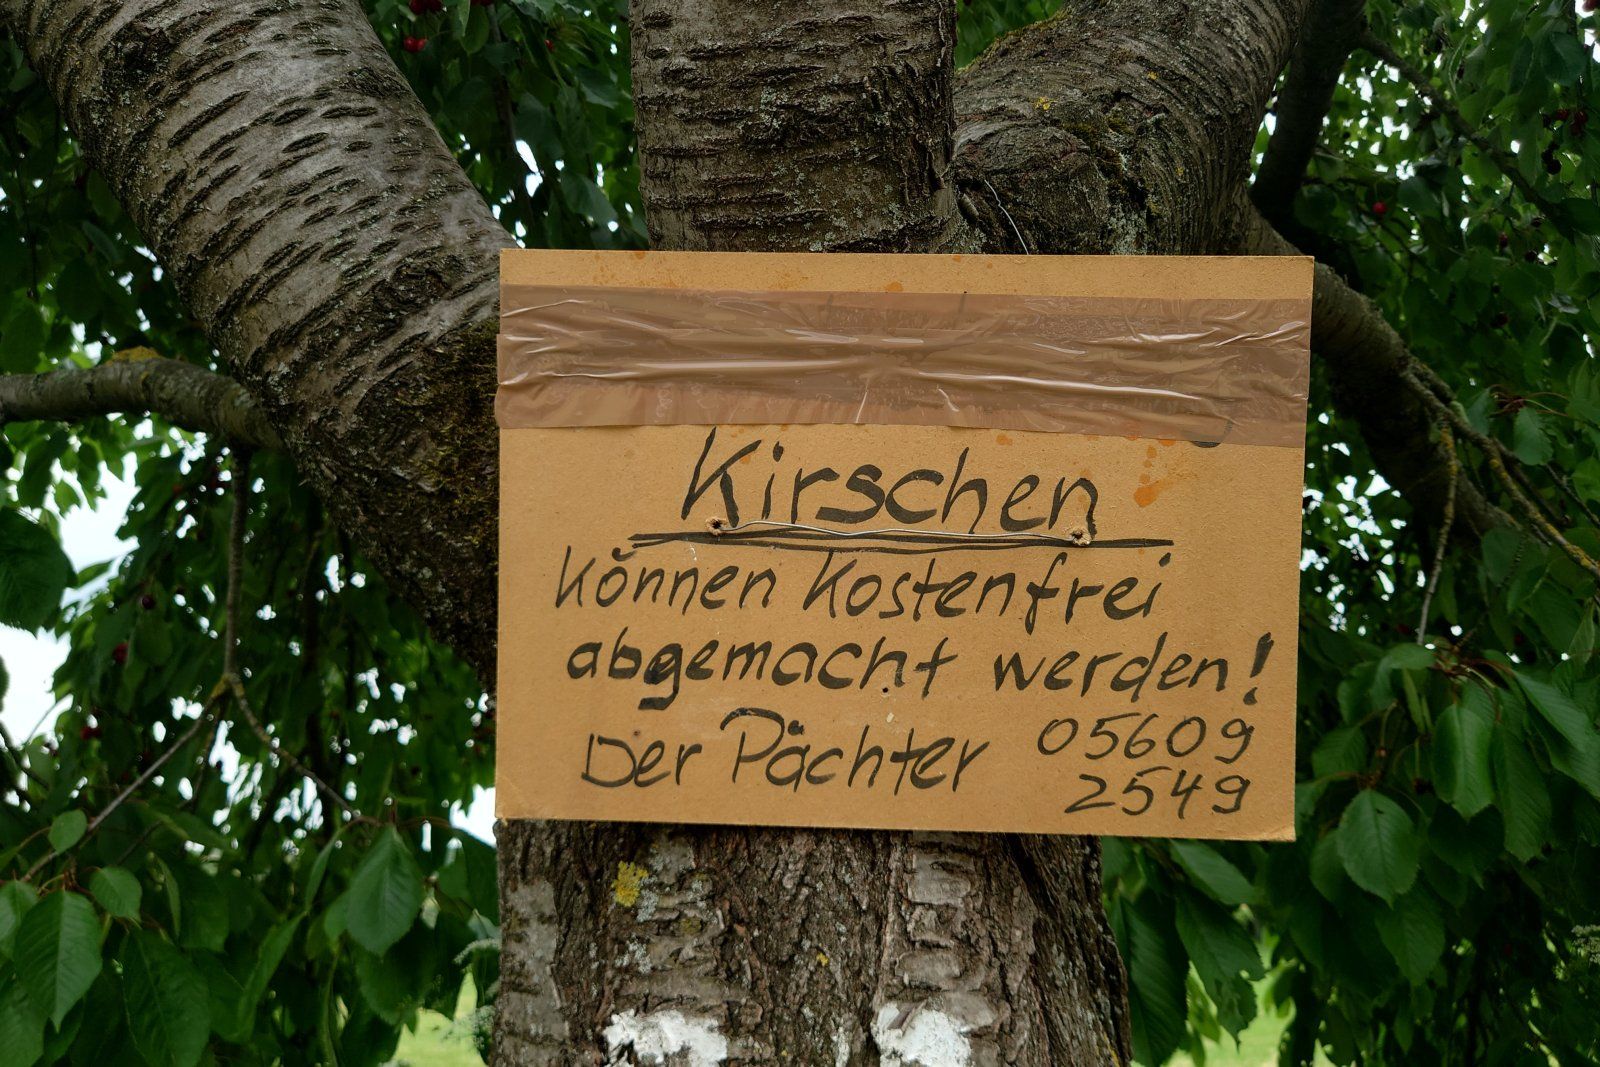 Kirschen
können kostenfrei
abgemacht werden!
Der Pächter 05609
2549